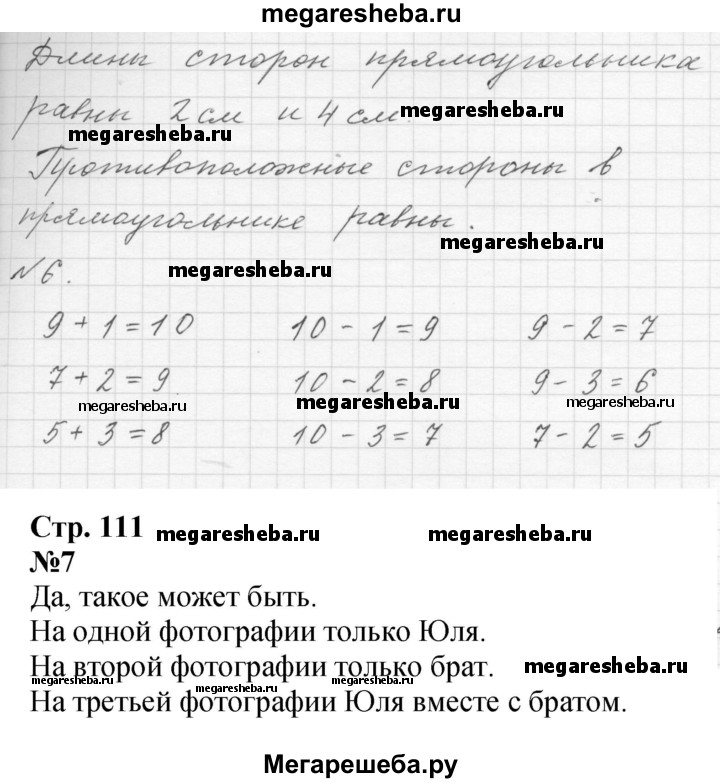 megaresheba.ru
Длины сторон прямоугольника
равны 2 см и 4 см. megaresheba.ru
megaresheba.ru
Противоположные стороны в
прямоугольнике равны.
megaresheba.ru
№6. megaresheba.ru
9 + 1 = 10 10 - 1 = 9 9 - 2 = 7
7 + 2 = 9 10 - 2 = 8 9 - 3 = 6
megaresheba.ru megaresheba.ru megaresheba.ru
5 + 3 = 8 10 - 3 = 7 7 - 2 = 5
Стр. 111 megaresheba.ru megaresheba.ru
№7
Да, такое может быть.
На одной фотографии только Юля.
На второй фотографии только брат. megaresheba.ru
megaresheba.ru megaresheba.ru megaresheba.ru
На третьей фотографии Юля вместе с братом.
Мегарешеба.ру